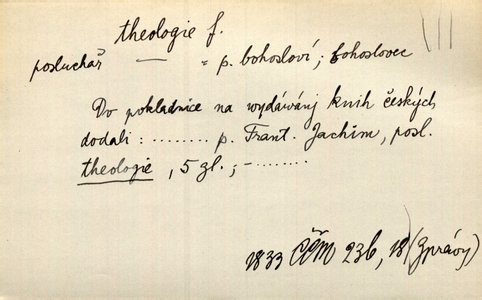 theologie f.
posluchář — = p. bohosloví; bohoslovec
Do pokladnice na wydáwánj knih českých
dodali: ........ p. Frant. Jachim, posl.
theologie, 5 zl.; -.......
1833 ČČM 236, 18 (Zpráwy)